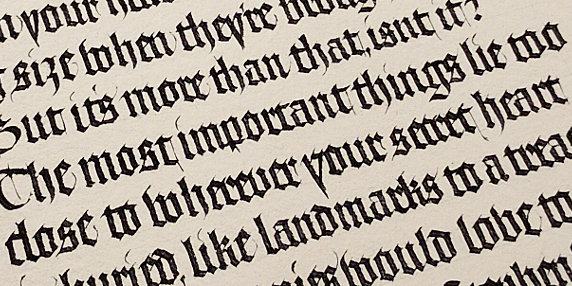 your
size when they're
But it's more than that, isn't it?
The most important things lie too
close to wherever your secret heart
buried, like landmarks to a treas
would love to